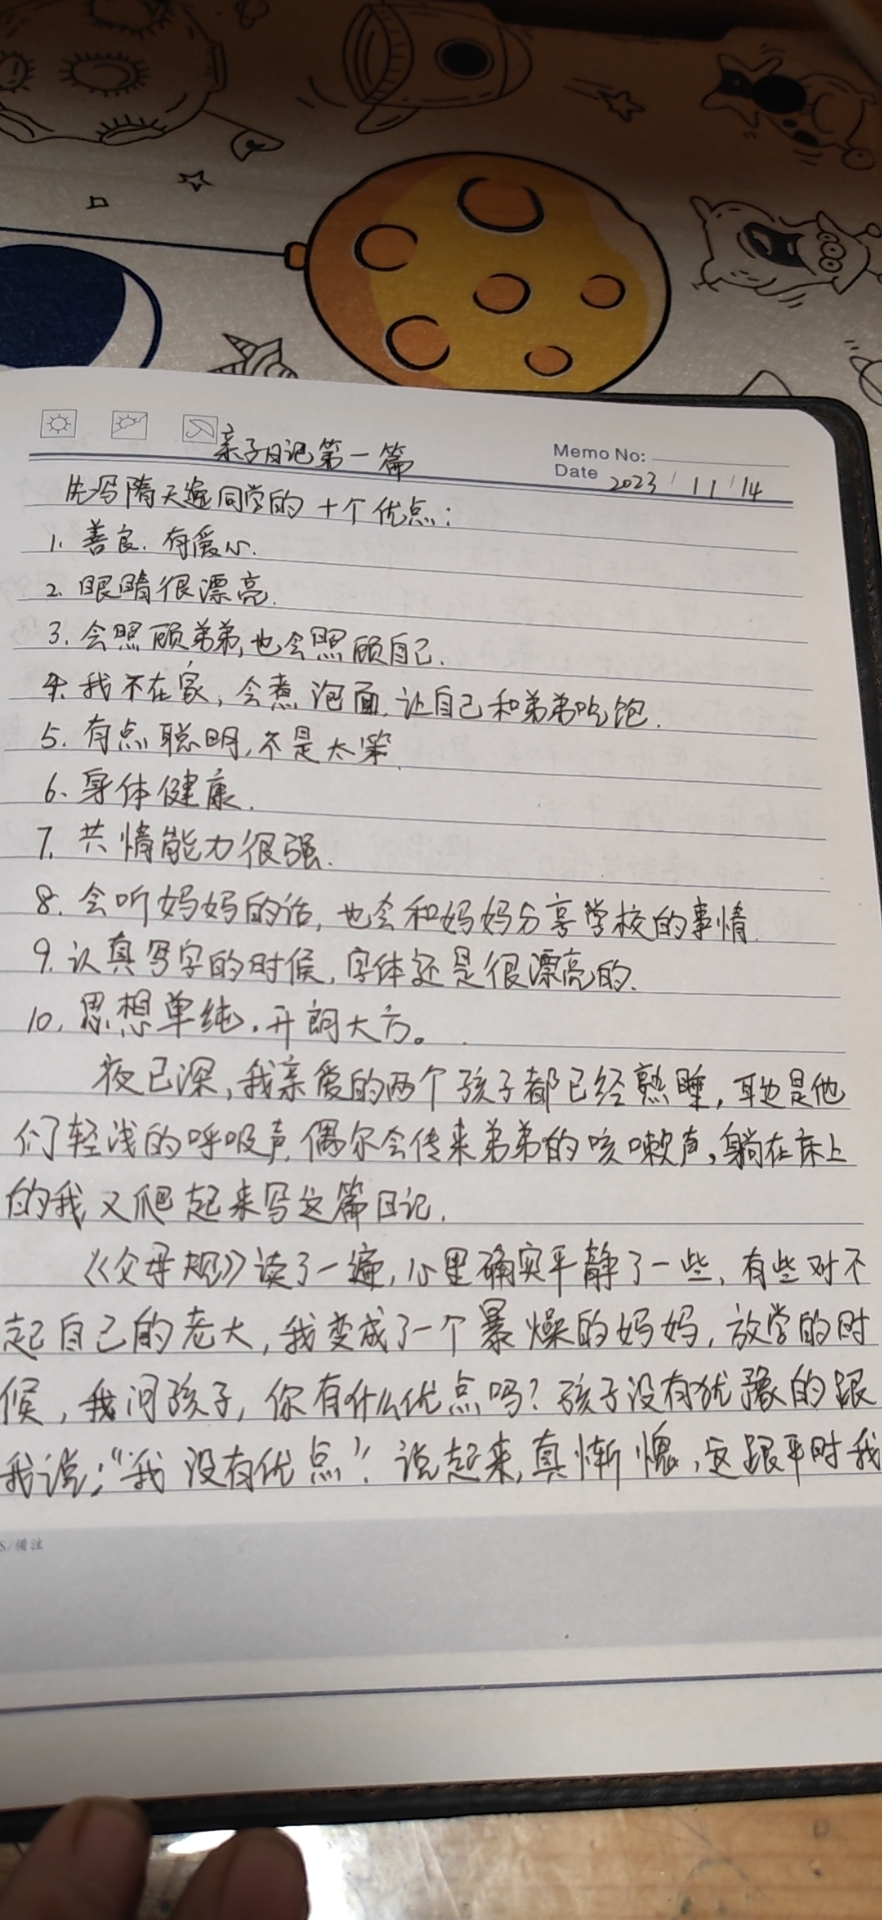 亲子日记第一篇
Memo No:
Date 2023 / 11 / 14
先写隋天逸同学的十个优点:
1. 善良.有爱心.
2. 眼睛很漂亮.
3. 会照顾弟弟,也会照顾自己.
4. 我不在家,会煮泡面,让自己和弟弟吃饱.
5. 有点聪明,不是太笨.
6. 身体健康.
7. 共情能力很强.
8. 会听妈妈的话,也会和妈妈分享学校的事情.
9. 认真写字的时候,字体还是很漂亮的.
10. 思想单纯.开朗大方。
夜已深,我亲爱的两个孩子都已经熟睡,耳边是他
们轻浅的呼吸声,偶尔会传来弟弟的咳嗽声,躺在床上
的我又爬起来写这篇日记.
《父母规》读了一遍,心里确实平静了一些,有些对不
起自己的老大,我变成了一个暴燥的妈妈,放学的时
候,我问孩子,你有什么优点吗?孩子没有犹豫的跟
我说:“我没有优点”.说起来,真惭愧,这跟平时我
S/備注